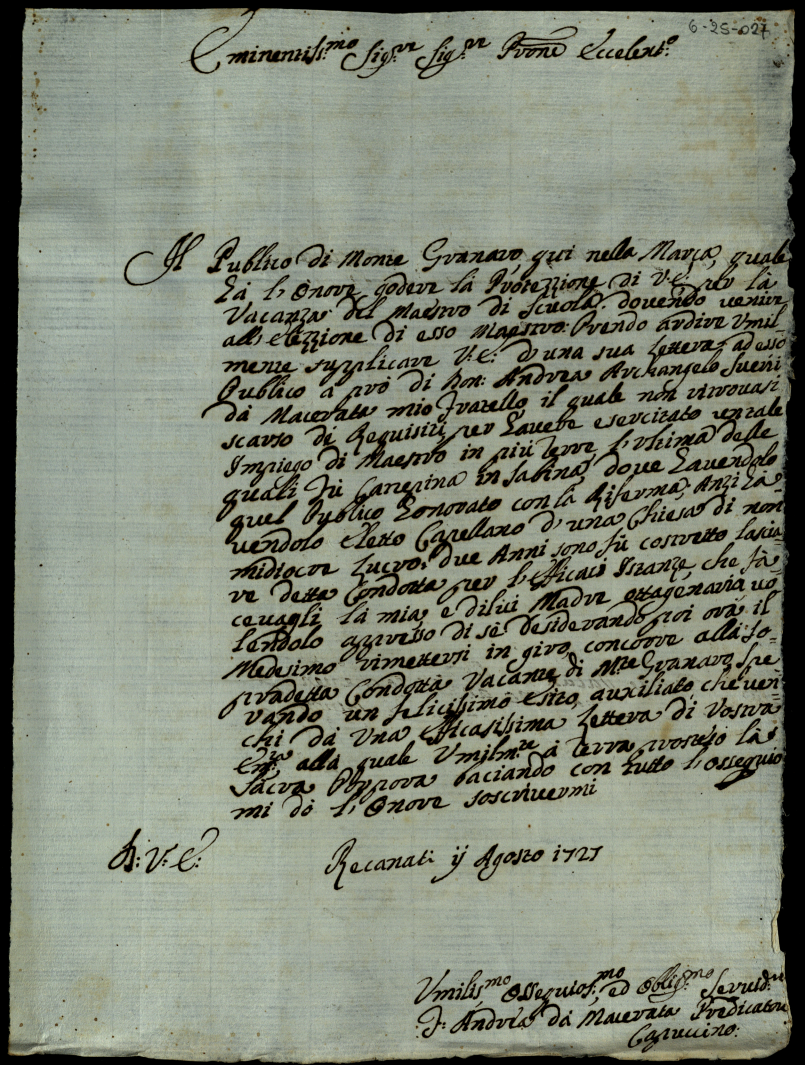 6-25-027
Eminentiss:mo Sig:re Sig:re Prone Eccelent:o
Il Publico di Monte Granaro, qui nella Marca, quale
hà l'Onore godere la Protezzione di V:E: per la
Vacanza del Maestro di Scuola, dovendo venire
all'Elezzione di esso Maestro: Prendo ardire Vmil-
mente supplicare V:E: d'una sua lettera ad esso
Publico a prò di Don: Andrea Archangelo
da Macerata mio Fratello, il quale non ritrovasi
scarso di Requisiti, per havere esercitato un tale
Impiego di Maestro in più Terre, l'ultima delle
quali fù in Sabina, dove havendolo
quel Publico honorato con la Riferma, Anzi ha-
vendolo eletto Capellano d'una Chiesa di non
midiocre lucro: due Anni sono fù costretto lascia-
re detta Condotta per l'Efficaci Istanze, che fà-
cevagli la mia, e di lui Madre ottagenaria vo-
lendolo appresso di sè. desiderando poi ora il
Medesimo rimettersi in giro, concorre alla so-
pradetta Condotta Vacante di M:te Granaro spe-
rando un felicissimo esito, auxiliato che ven-
chi da Una Efficasissima lettera di Vostra
Em:za alla quale Vmilm:te à terra prosteso la
Sacra Porpora baciando con tutto l'Ossequio
mi dò l'Onore soscrivermi
D: V: E:
Recanati ij Agosto 1727
Vmilis:mo Ossequios:mo ed Oblig:mo Servid:re
F: Andrea da Macerata Predicatore
Capuccino: